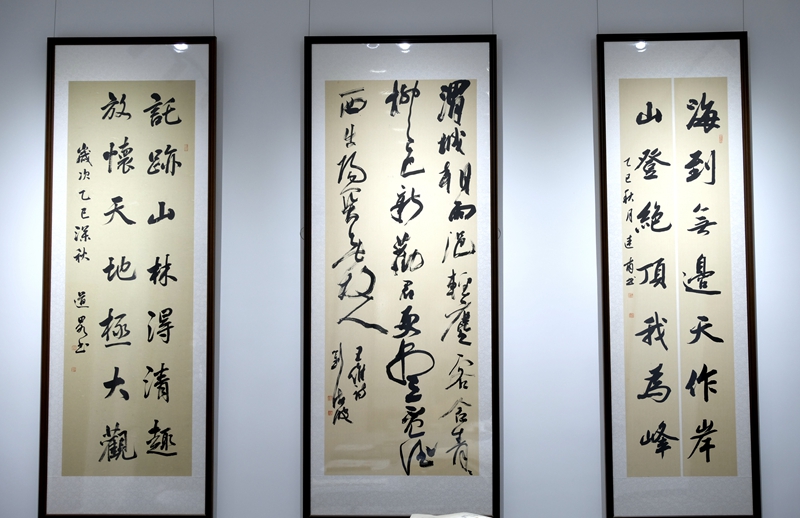 海到無邊天作岸
山登絕頂我為峰
乙巳秋月
渭城朝雨浥輕塵客舍青〻
柳色新勸君更盡一杯酒
西出陽關無故人
王維詩
託跡山林得清趣
放懷天地極大觀
歲次乙巳深秋